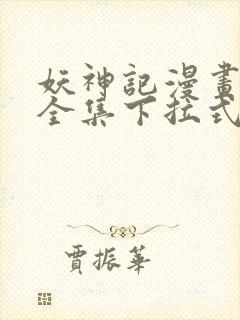 妖神記漫畫
全集下拉式
賈振華